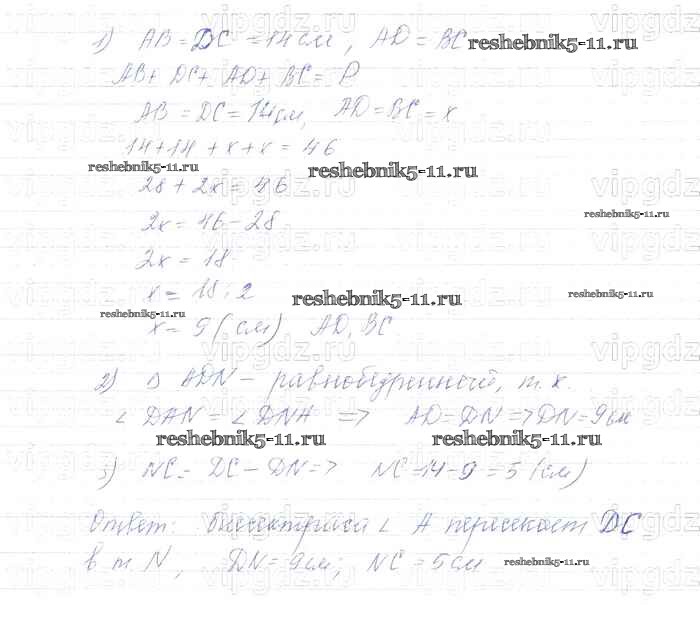 1) AB = DC = 14 см, AD = BC reshebnik5-11.ru
AB + DC + AD + BC = P
AB = DC = 14 см, AD = BC = x
14+14 + x + x = 46
reshebnik5-11.ru reshebnik5-11.ru
28 + 2x = 46
reshebnik5-11.ru
2x = 46 - 28
2x = 18
x = 18 : 2 reshebnik5-11.ru reshebnik5-11.ru
reshebnik5-11.ru
x = 9 (см) AD, BC
2) Δ ADN - равнобедренный, т.к.
∠ DAN = ∠ DNA => AD = DN => DN = 9 см
reshebnik5-11.ru reshebnik5-11.ru
3) NC = DC - DN => NC = 14 - 9 = 5 (см)
Ответ: биссектриса ∠ A пересекает DC
в т N, DN = 9 см; NC = 5 см reshebnik5-11.ru